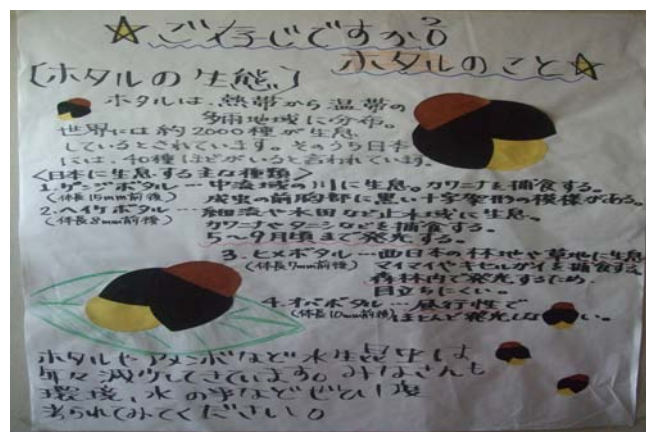 ☆ ご存じですか?
ホタルのこと☆
〔ホタルの生態〕
ホタルは、熱帯から温帯の
多雨地域に分布。
世界には約2000種が生息
しているとされています。そのうち日本
には、40種ほどがいると言われています。
<日本に生息する主な種類>
1.ゲンジボタル…中流域の川に生息。カワニナを捕食する。
(体長15mm前後) 成虫の前胸部に黒い十字架形の模様がある。
2.ヘイケボタル…細流や水田など止水域に生息。
(体長8mm前後) カワニナやタニシなどを捕食する。
5〜9月頃まで発光する。
3.ヒメボタル…西日本の林地や草地に生息
(体長7mm前後) マイマイやキセルガイを捕食する
森林内で発光するため、
目立ちにくい。
4.オバボタル…昼行性で
(体長10mm前後) ほとんど発光しない。
ホタルやアメンボなど水生昆虫は
年々減少してきています。みなさんも
環境、水の事などぜひ1度
考られてみてください。